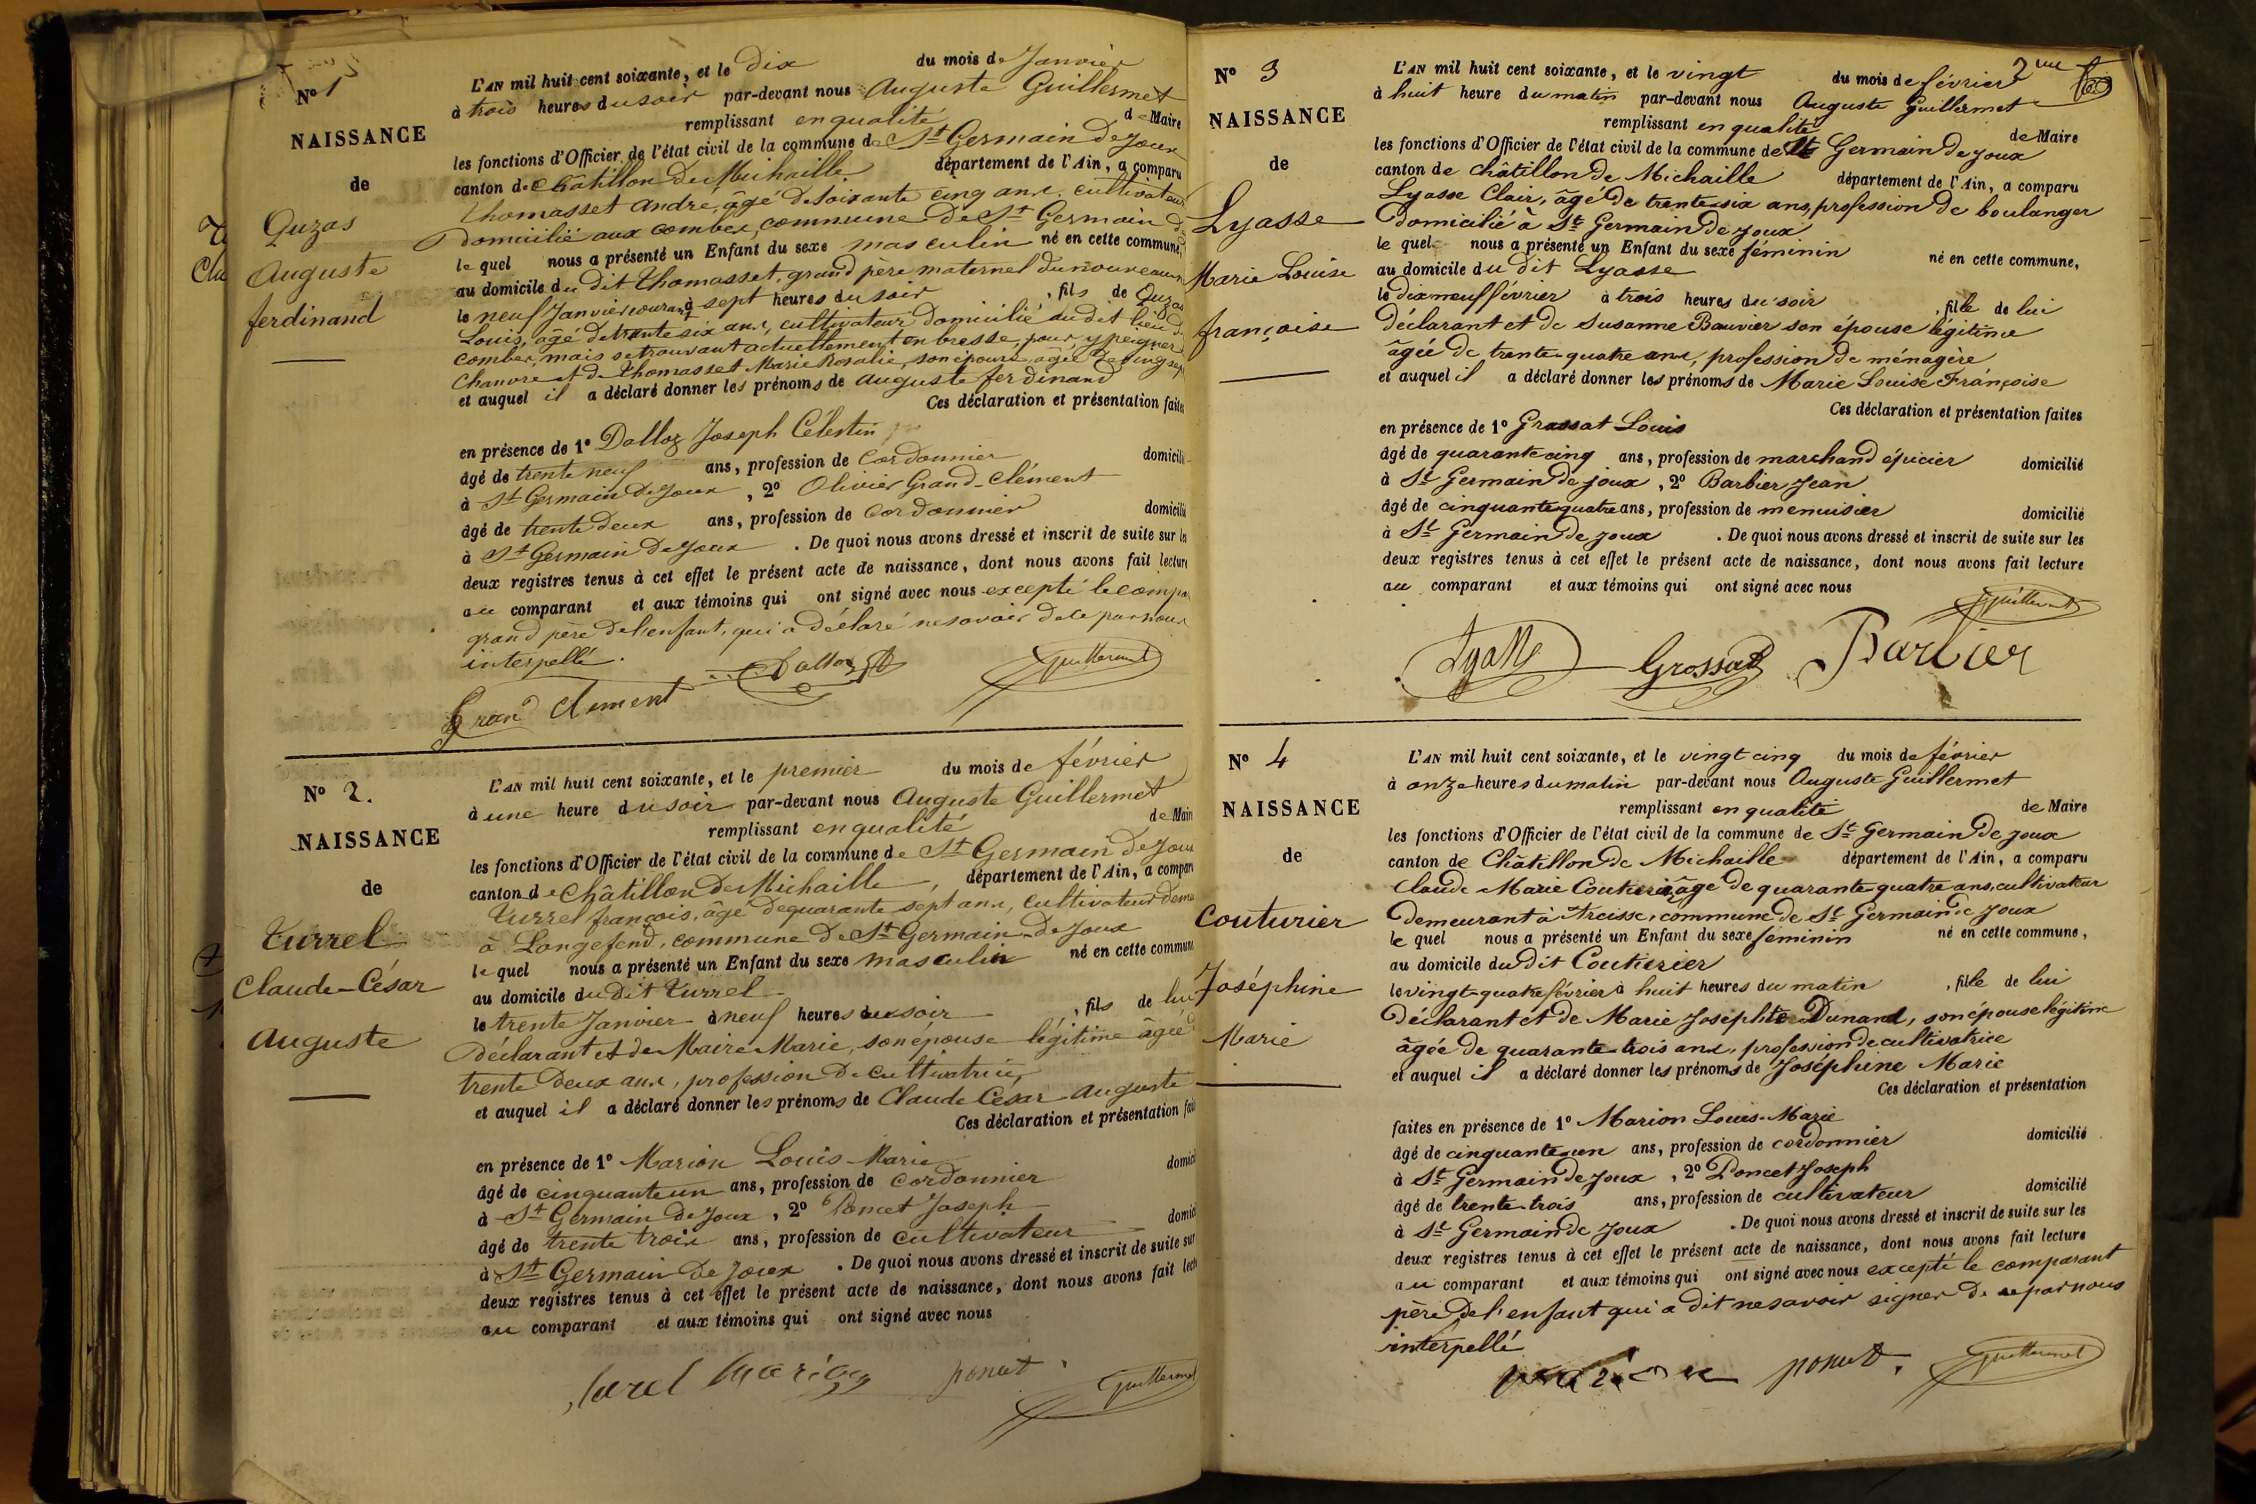 No 1
NAISSANCE
de
Quzas
Auguste
ferdinand
L'AN mil huit cent soixante, et le dix du mois de Janvier
à trois heures du soir par-devant nous Auguste Guillermet
remplissant en qualité de Maire
les fonctions d'Officier de l'état civil de la commune de St Germain De Joux
canton de Châtillon De Michaille département de l'Ain, a comparu
thomasset andré, âgé de soixante cinq ans, cultivateur
domicilié aux combes, commune De St Germain de
le quel nous a présenté un Enfant du sexe masculin né en cette commune,
au domicile du dit thomasset, grand père maternel du nouveau
le neuf Janvier courant à sept heures du soir, fils de Quzas
Louis, âgé de trente six ans, cultivateur domicilié au dit lieu des
combes, mais se trouvant actuellement en bresse, pour y peigner
chanvre et de thomasset Marie Rosalie, son épouse âgée de vingt sept
et auquel il a déclaré donner les prénoms de auguste ferdinand
Ces déclaration et présentation faites
en présence de 1o Dalloz Joseph Célestin
âgé de trente neuf ans, profession de Cordonnier domicilié
à St Germain De Joux, 2o Olivier Grand-Clément
âgé de trente deux ans, profession de Cordonnier domicilié
à St Germain De Joux. De quoi nous avons dressé et inscrit de suite sur les
deux registres tenus à cet effet le présent acte de naissance, dont nous avons fait lecture
au comparant et aux témoins qui ont signé avec nous excepté le compa
grand père de l'enfant, qui a déclaré ne savoir de ce par nous
interpellé.
Dalloz Guillermet
Grand Clement
No 2.
NAISSANCE
de
Turrel
Claude-César
Auguste
L'AN mil huit cent soixante, et le premier du mois de février
à une heure du soir par-devant nous Auguste Guillermet
remplissant en qualité de Maire
les fonctions d'Officier de l'état civil de la commune de St Germain De Joux
canton de Châtillon De Michaille, département de l'Ain, a comparu
Turrel françois, âgé de quarante sept ans, cultivateur deme
à Longefend, commune De St Germain De Joux
le quel nous a présenté un Enfant du sexe masculin né en cette commune
au domicile du dit Turrel
le trente Janvier à neuf heures du soir, fils de lui
Déclarant et de Maire Marie, son épouse légitime âgée
trente deux ans, profession De cultivatrice,
et auquel il a déclaré donner les prénoms de Claude César Auguste
Ces déclaration et présentation fait
en présence de 1o Marion Louis Marie
âgé de cinquante un ans, profession de cordonnier domici
à St Germain De Joux, 2o Poncet Joseph
âgé de trente trois ans, profession de cultivateur domici
à St Germain De Joux. De quoi nous avons dressé et inscrit de suite sur
deux registres tenus à cet effet le présent acte de naissance, dont nous avons fait lect
au comparant et aux témoins qui ont signé avec nous
turel marion ponset Guillermet
2me
No 3
NAISSANCE
de
Lyasse
Marie Louise
françoise
L'AN mil huit cent soixante, et le vingt du mois de février
à huit heure du matin par-devant nous Auguste Guillermet
remplissant en qualité de Maire
les fonctions d'Officier de l'état civil de la commune de St Germain De Joux
canton de châtillon de Michaille département de l'Ain, a comparu
Lyasse Clair, âgé de trente six ans, profession de boulanger
domicilié à St Germain De Joux
le quel nous a présenté un Enfant du sexe féminin né en cette commune,
au domicile du dit Lyasse
le dix neuf février à trois heures du soir, fille de lui
déclarant et de Susanne Bouvier son épouse légitime
âgée de trente-quatre ans, profession de ménagère
et auquel il a déclaré donner les prénoms de Marie Louise Françoise
Ces déclaration et présentation faites
en présence de 1o Grassat Louis
âgé de quarante cinq ans, profession de marchand épicier domicilié
à St Germain De joux, 2o Barbier Jean
âgé de cinquante quatre ans, profession de menuisier domicilié
à St Germain De Joux. De quoi nous avons dressé et inscrit de suite sur les
deux registres tenus à cet effet le présent acte de naissance, dont nous avons fait lecture
au comparant et aux témoins qui ont signé avec nous
Guillermet
Lyasse Grossat Barbier
No 4
NAISSANCE
de
Couturier
Joséphine
Marie
L'AN mil huit cent soixante, et le vingt cinq du mois de février
à onze heures du matin par-devant nous Auguste Guillermet
remplissant en qualité de Maire
les fonctions d'Officier de l'état civil de la commune de St Germain De Joux
canton de Châtillon De Michaille département de l'Ain, a comparu
Claude Marie Couturier, âgé de quarante quatre ans, cultivateur
demeurant à trcisse, commune de St Germain De Joux
le quel nous a présenté un Enfant du sexe féminin né en cette commune,
au domicile du dit Couturier
le vingt-quatre février à huit heures du matin, fille de lui
Déclarant et de Marie Josephte Dunand, son épouse légitime
âgée de quarante-trois ans, profession de cultivatrice
et auquel il a déclaré donner les prénoms de Joséphine Marie
Ces déclaration et présentation
faites en présence de 1o Marion Louis-Marie
âgé de cinquante un ans, profession de cordonnier domicilié
à St Germain De Joux, 2o Poncet Joseph
âgé de trente trois ans, profession de cultivateur domicilié
à St Germain De Joux. De quoi nous avons dressé et inscrit de suite sur les
deux registres tenus à cet effet le présent acte de naissance, dont nous avons fait lecture
au comparant et aux témoins qui ont signé avec nous excepté le comparant
père De l'enfant qui a dit ne savoir signer De ce par nous
interpellé
marion ponset. Guillermet